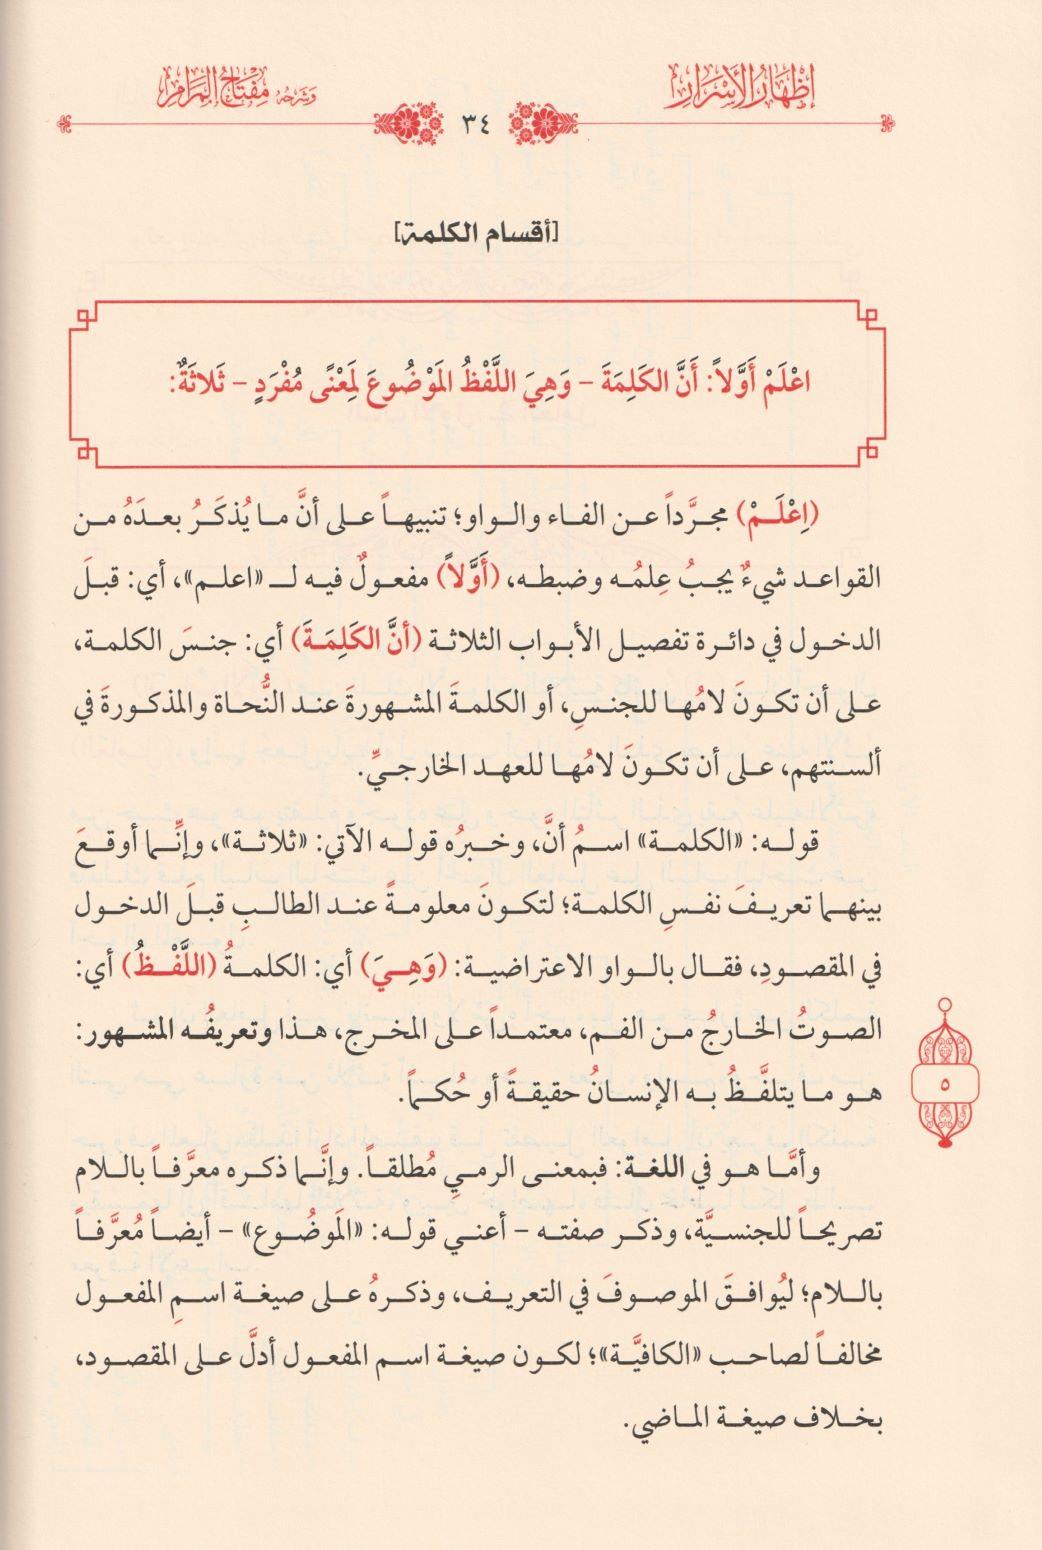 إظهار الأسرار
وشرحه مفتاح المرام
٣٤
[أقسام الكلمة]
اعْلَمْ أَوَّلاً: أَنَّ الكَلِمَةَ – وَهِيَ اللَّفْظُ المَوْضُوعَ لِمَعْنًى مُفْرَدٍ – ثَلاثَةٌ:
(اِعْلَمْ) مجرَّداً عن الفاء والواو؛ تنبيهاً على أنَّ ما يُذكَرُ بعدَهُ من
القواعد شيءٌ يجبُ عِلمُه وضبطه، (أَوَّلاً) مفعولٌ فيه لـ «اعلم»، أي: قبلَ
الدخول في دائرة تفصيل الأبواب الثلاثة (أنَّ الكَلِمَةَ) أي: جنسَ الكلمة،
على أن تكونَ لامُها للجنسِ، أو الكلمةَ المشهورةَ عند النُّحاة والمذكورةَ في
ألسنتهم، على أن تكونَ لامُها للعهد الخارجيِّ.
قوله: «الكلمة» اسمُ أنَّ، وخبرُه قوله الآتي: «ثلاثة»، وإنَّما أوقعَ
بينهما تعريفَ نفسِ الكلمة؛ لتكونَ معلومةً عند الطالبِ قبلَ الدخول
في المقصودِ، فقال بالواو الاعتراضية: (وَهِيَ) أي: الكلمةُ (اللَّفْظُ) أي:
الصوتُ الخارجُ من الفم، معتمداً على المخرج، هذا وتعريفُه المشهور:
هو ما يتلفَّظُ به الإنسانُ حقيقةً أو حُكماً.
٥
وأمَّا هو في اللغة: فبمعنى الرميِ مُطلقاً. وإنَّما ذكره معرَّفاً باللام
تصريحاً للجنسيَّة، وذكر صفته – أعني قوله: «المَوضُوع» – أيضاً مُعرَّفاً
باللام؛ ليُوافقَ الموصوفَ في التعريف، وذكرهُ على صيغة اسمِ المفعول
مخالفاً لصاحب «الكافيَّة»؛ لكون صيغة اسم المفعول أدلَّ على المقصود،
بخلاف صيغة الماضي.